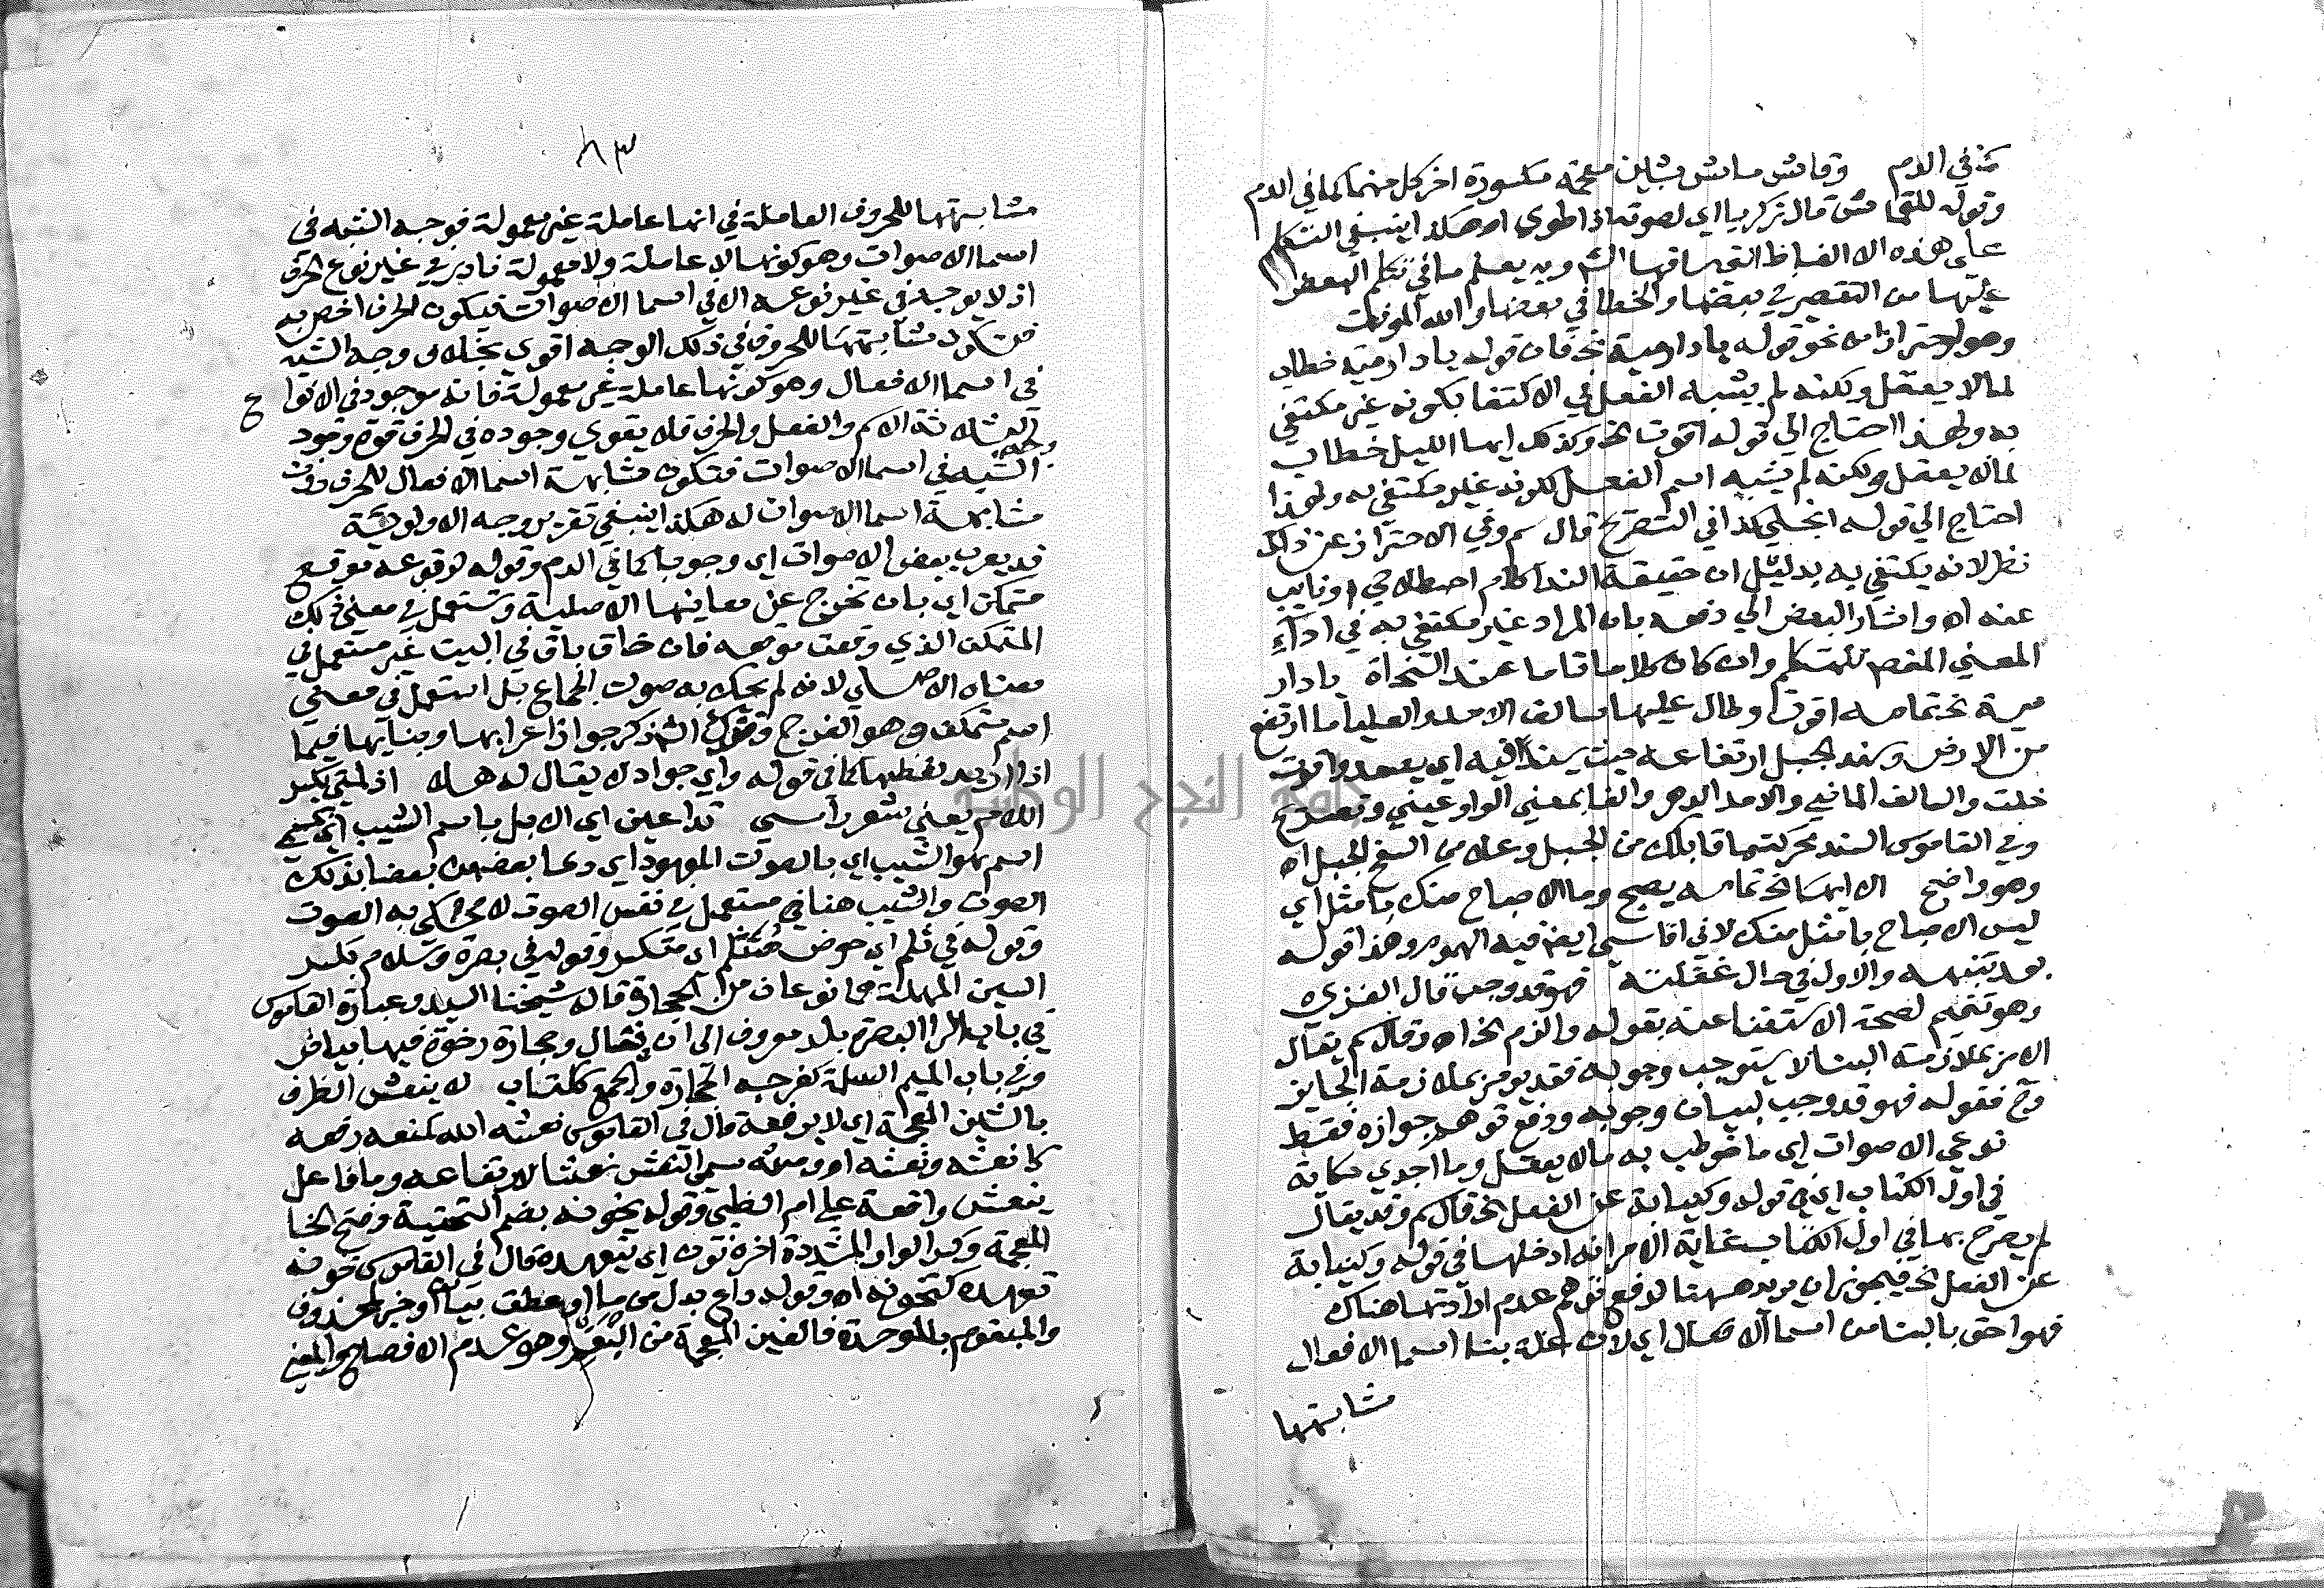 كثه في الدم وقاش ماش بشين معجمة مكسورة اخر كل منهما كما في الدم
وقوله للقماش قال زكريا اي لصوته اذا طوي اه هكذا ينبغي التكلم
على هذه الالفاظ التي ساقها الش وبه يعلم ما في تكلم البعض
عليها من التقصير في بعضها والخطا في بعضها والله الموفق
وهو احتراز من نحو قوله يا دار مية الخ فان قوله يا دار مية خطاب
لما لا يعقل ولكنه لم يشبه الفعل في الاكتفا بكونه غير مكتفي
به ولهذا احتاج الى قوله اقوت الخ وكذلك ايها الليل خطاب
لما لا يعقل ولكنه لم يشبه اسم الفعل لكونه غير مكتفي به ولهذا
احتاج الى قوله انجلي كذا في التصريح قال سم وفي الاحتراز عن ذلك
نظر لانه يكتفي به بدليل ان حقيقة الندا كلام اصطلاحي او نايب
عنه اه واشار البعض الي دفعه بان المراد غير مكتفي به في اداء
المعني المقصود للمتكلم وان كان كلاما تاما عند النحاة يا دار
مية الخ تمامه اقوت وطال عليها سالف الامد والعليا ما ارتفع
من الارض وسند الجبل ارتفاعه حيث يسند اليه اي يصعد واقوت
خلت والسالف الماضي والامد الدهر والفا بمعني الواو عيني وتصريح
وفي القاموس السند محركة ما قابلك من الجبل وعلا من السفح الجبل اه
وهو واضح الا ايها الخ تمامه بصبح وما الاصباح منك بامثل اي
ليس الاصباح بامثل منك لاني اقاسي ايضا فيه الهموم وهذا قوله
بعد تنبهه والاول في حال غفلته فهو قد وجب قال الغزي
وهو تتميم لصحة الاستغنا عنه بقوله والزم الخ اه وقال سم يقال
الامر بملازمة البنا لا يستوجب وجوبه فقد يومر بملازمة الجايز
رح فقوله فهو قد وجب لبيان وجوبه ودفع توهم جوازه فقط
نوعي الاصوات اي ما خوطب به ما لا يعقل وما اجدي حكاية
في اول الكتاب اي في قوله وكنيابة عن الفعل الخ قال سم وقد يقال
لم يصرح بها في اول الكتاب غاية الامر انه ادخلها في قوله وكنيابة
عن الفعل الخ فيجوز ان يريد ههنا لدفع توهم عدم ارادتها هناك
فهو احق بالبنا من اسما الافعال اي لان علة بنا اسما الافعال
مشابهتها
٨٣
مشابهتها للحروف العاملة في انها عاملة غير معمولة فوجه الشبه في
اسما الاصوات وهو كونها لا عاملة ولا معمولة نادر في غير نوع الحرف
اذ لا يوجد في غير نوعه الا في اسما الاصوات فيكون الحرف اخص به
فتكون مشابهتها للحروف في ذلك الوجه اقوي بخلاف وجه الشبه
في اسما الافعال وهو كونها عاملة غير معمولة فانه موجود في الانواع
الثلاثة الاسم والفعل والحرف فلا يقوي وجوده في الحرف قوة وجود
وجه الشبه في اسما الاصوات فتكون مشابهة اسما الافعال للحرف دون
مشابهة اسما الاصوات له هكذا ينبغي تقرير وجه الاولوية
قد يعرب بعض الاصوات اي وجوبا كما في الدم وقوله لوقوعه موقع
متمكن اي بان تخرج عن معانيها الاصلية وتستعمل في معني ذلك
المتمكن الذي وقعت موقعه فان خاق باق في البيت غير مستعمل في
معناه الاصلي لانه لم يحك به صوت الجماع بل استعمل في معني
اسم متمكن وهو الفرج وقوله الش ذكر جواز اعرابها وبنايها فيما
اذا اريد لفظها كما في قوله واي جواد لا يقال له هلا اذ لمتي بكسر
اللام يعني شعر رأسي تداعين اي الابل باسم الشيب اي بمسمى
اسم هو الشيب اي بالصوت المعهود اي دعا بعضهن بعضا بذلك
الصوت والشيب هنا مستعمل في نفس الصوت لا محكي به الصوت
وقوله في ثلم اي حوض متثلم اي متكسر وقوله في بصرة وسلام بكسر
السين المهملة هما نوعان من الحجارة قاله شيخنا السيد وعبارة القاموس
في باب الرا البصرة بلد معروف الى ان قال وحجارة رخوة فيها بياض
وفي باب الميم السلمة كفرحه الحجارة والجمع ككتاب لا ينعش الطرف
بالشين المعجمة اي لا يرفعه قال في القاموس نعشه الله كمنعه رفعه
كانعشه ونعشه اه ومنه سمي النعش نعشا لارتفاعه وما فاعل
ينعش واقعة على ام الظبي وقوله تخونه بضم التحتية وفتح الخا
المعجمة وكسر الواو المشددة اخره نون اي يتعهده قال في القاموس خونه
تعهده كتخونه اه وقوله داع بدل من ما او عطف بيان او خبر لمحذوف
والمبغوم بالموحدة فالغين المعجمة من البغم وهو عدم الافصاح والمعني